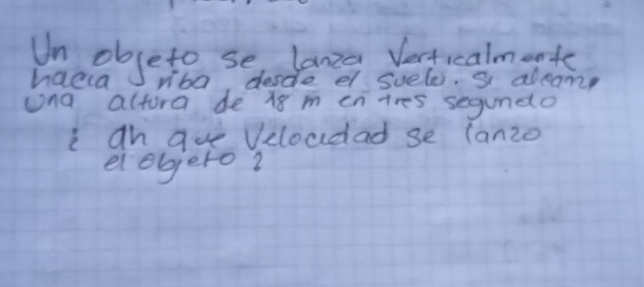 Un objeto se lanza Verticalmente
hacia riba desde el suelo. Si alcanza
una altura de 18 m en tres segundo
¿ ah que Velocidad se lanzo
el objeto ?